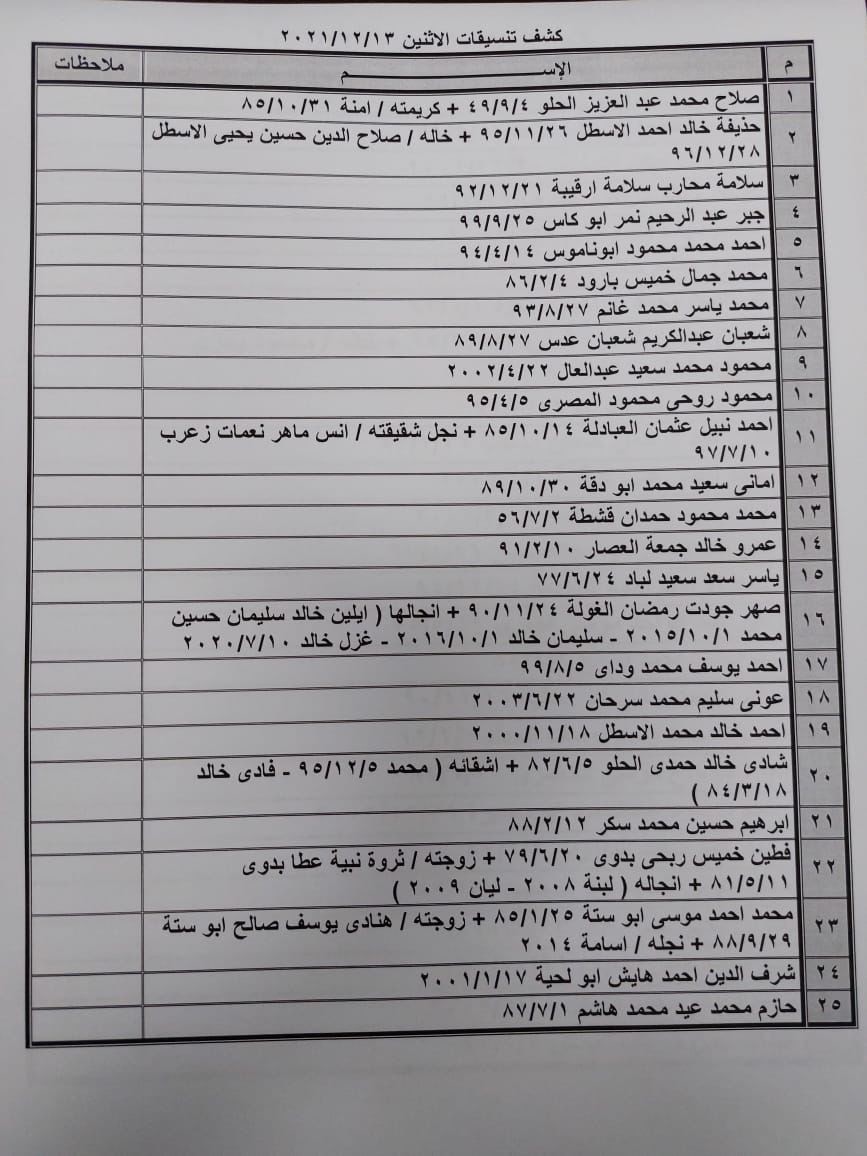 كشف تنسيقات الاثنين ٢٠٢١/١٢/١٣
م الإســــــــم ملاحظات
١ صلاح محمد عبد العزيز الحلو ٤٩/٩/٤ + كريمته / امنة ٨٥/١٠/٣١
٢ حذيفة خالد احمد الاسطل ٩٥/١١/٢٦ + خاله / صلاح الدين حسين يحيى الاسطل
٩٦/١٢/٢٨
٣ سلامة محارب سلامة ارقيبة ٩٢/١٢/٢١
٤ جبر عبد الرحيم نمر ابو كاس ٩٩/٩/٢٥
٥ احمد محمد محمود ابوناموس ٩٤/٤/١٤
٦ محمد جمال خميس بارود ٨٦/٢/٤
٧ محمد ياسر محمد غانم ٩٣/٨/٢٧
٨ شعبان عبدالكريم شعبان عدس ٨٩/٨/٢٧
٩ محمود محمد سعيد عبدالعال ٢٠٠٢/٤/٢٢
١٠ محمود روحى محمود المصرى ٩٥/٤/٥
١١ احمد نبيل عثمان العبادلة ٨٥/١٠/١٤ + نجل شقيقته / انس ماهر نعمات زعرب
٩٧/٧/١٠
١٢ امانى سعيد محمد ابو دقة ٨٩/١٠/٣٠
١٣ محمد محمود حمدان قشطة ٥٦/٧/٢
١٤ عمرو خالد جمعة العصار ٩١/٢/١٠
١٥ ياسر سعد سعيد لباد ٧٧/٦/٢٤
١٦ صهر جودت رمضان الغولة ٩٠/١١/٢٤ + انجالها ( ايلين خالد سليمان حسين
محمد ٢٠١٥/١٠/١ - سليمان خالد ٢٠١٦/١٠/١ - غزل خالد ٢٠٢٠/٧/١٠
١٧ احمد يوسف محمد وداى ٩٩/٨/٥
١٨ عونى سليم محمد سرحان ٢٠٠٣/٦/٢٢
١٩ احمد خالد محمد الاسطل ٢٠٠٠/١١/١٨
٢٠ شادى خالد حمدى الحلو ٨٢/٦/٥ + اشقائه ( محمد ٩٥/١٢/٥ - فادى خالد
٨٤/٣/١٨ )
٢١ ابرهيم حسين محمد سكر ٨٨/٢/١٢
٢٢ فطين خميس ربحى بدوى ٧٩/٦/٢٠ + زوجته / ثروة نبية عطا بدوى
٨١/٥/١١ + انجاله ( لبنة ٢٠٠٨ - ليان ٢٠٠٩ )
٢٣ محمد احمد موسى ابو ستة ٨٥/١/٢٥ + زوجته / هنادى يوسف صالح ابو ستة
٨٨/٩/٢٩ + نجله / اسامة ٢٠١٤
٢٤ شرف الدين احمد هايش ابو لحية ٢٠٠١/١/١٧
٢٥ حازم محمد عيد محمد هاشم ٨٧/٧/١